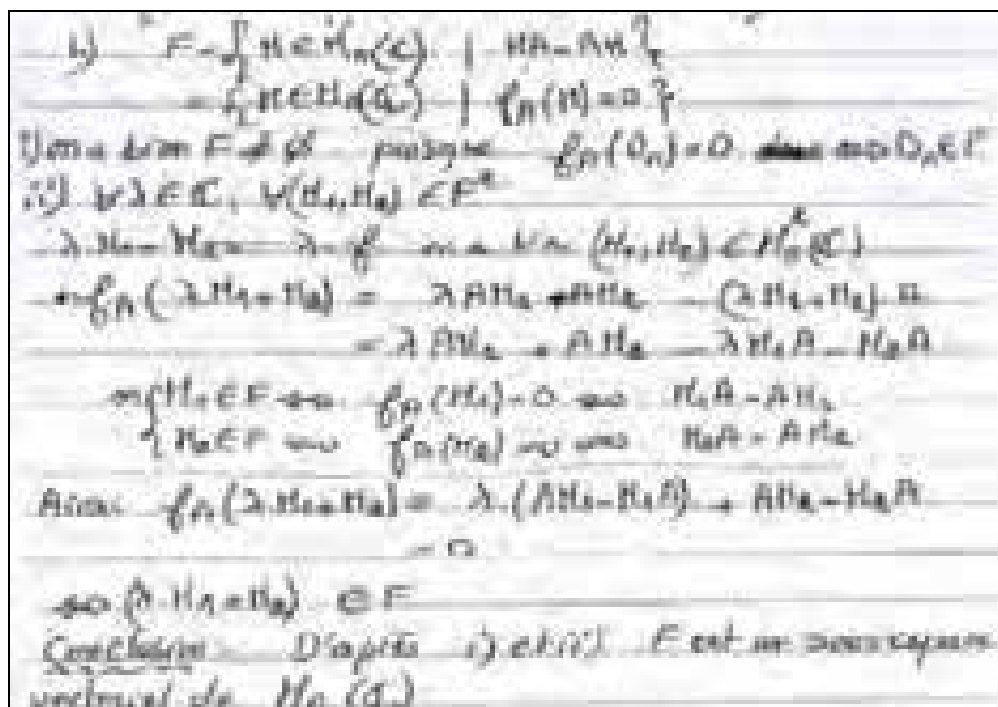 b) F = { M ∈ Mn(C) | MA = AM }
= { M ∈ Mn(C) | fA(M) = 0 }
i) on a bien F ≠ ∅ puisque fA(On) = 0 On ∈ F
ii) ∀λ ∈ C, ∀(M1, M2) ∈ F²
λ.M1 + M2 on a bien (M1, M2) ∈ Mn²(C)
fA(λ M1 + M2) = λ AM1 + AM2 - (λM1 + M2) A
= λ AM1 + AM2 - λ M1A - M2A
or { M1 ∈ F ⟺ fA(M1) = 0 ⟺ M1A = AM1
{ M2 ∈ F ⟺ fA(M2) = 0 ⟺ M2A = AM2
Ainsi fA(λ.M1 + M2) = λ.(AM1 - M1A) + AM2 - M2A
= 0
⟹ (λ.M1 + M2) ∈ F
Conclusion D'après i) et ii) F est un sous espace
vectoriel de Mn(C)